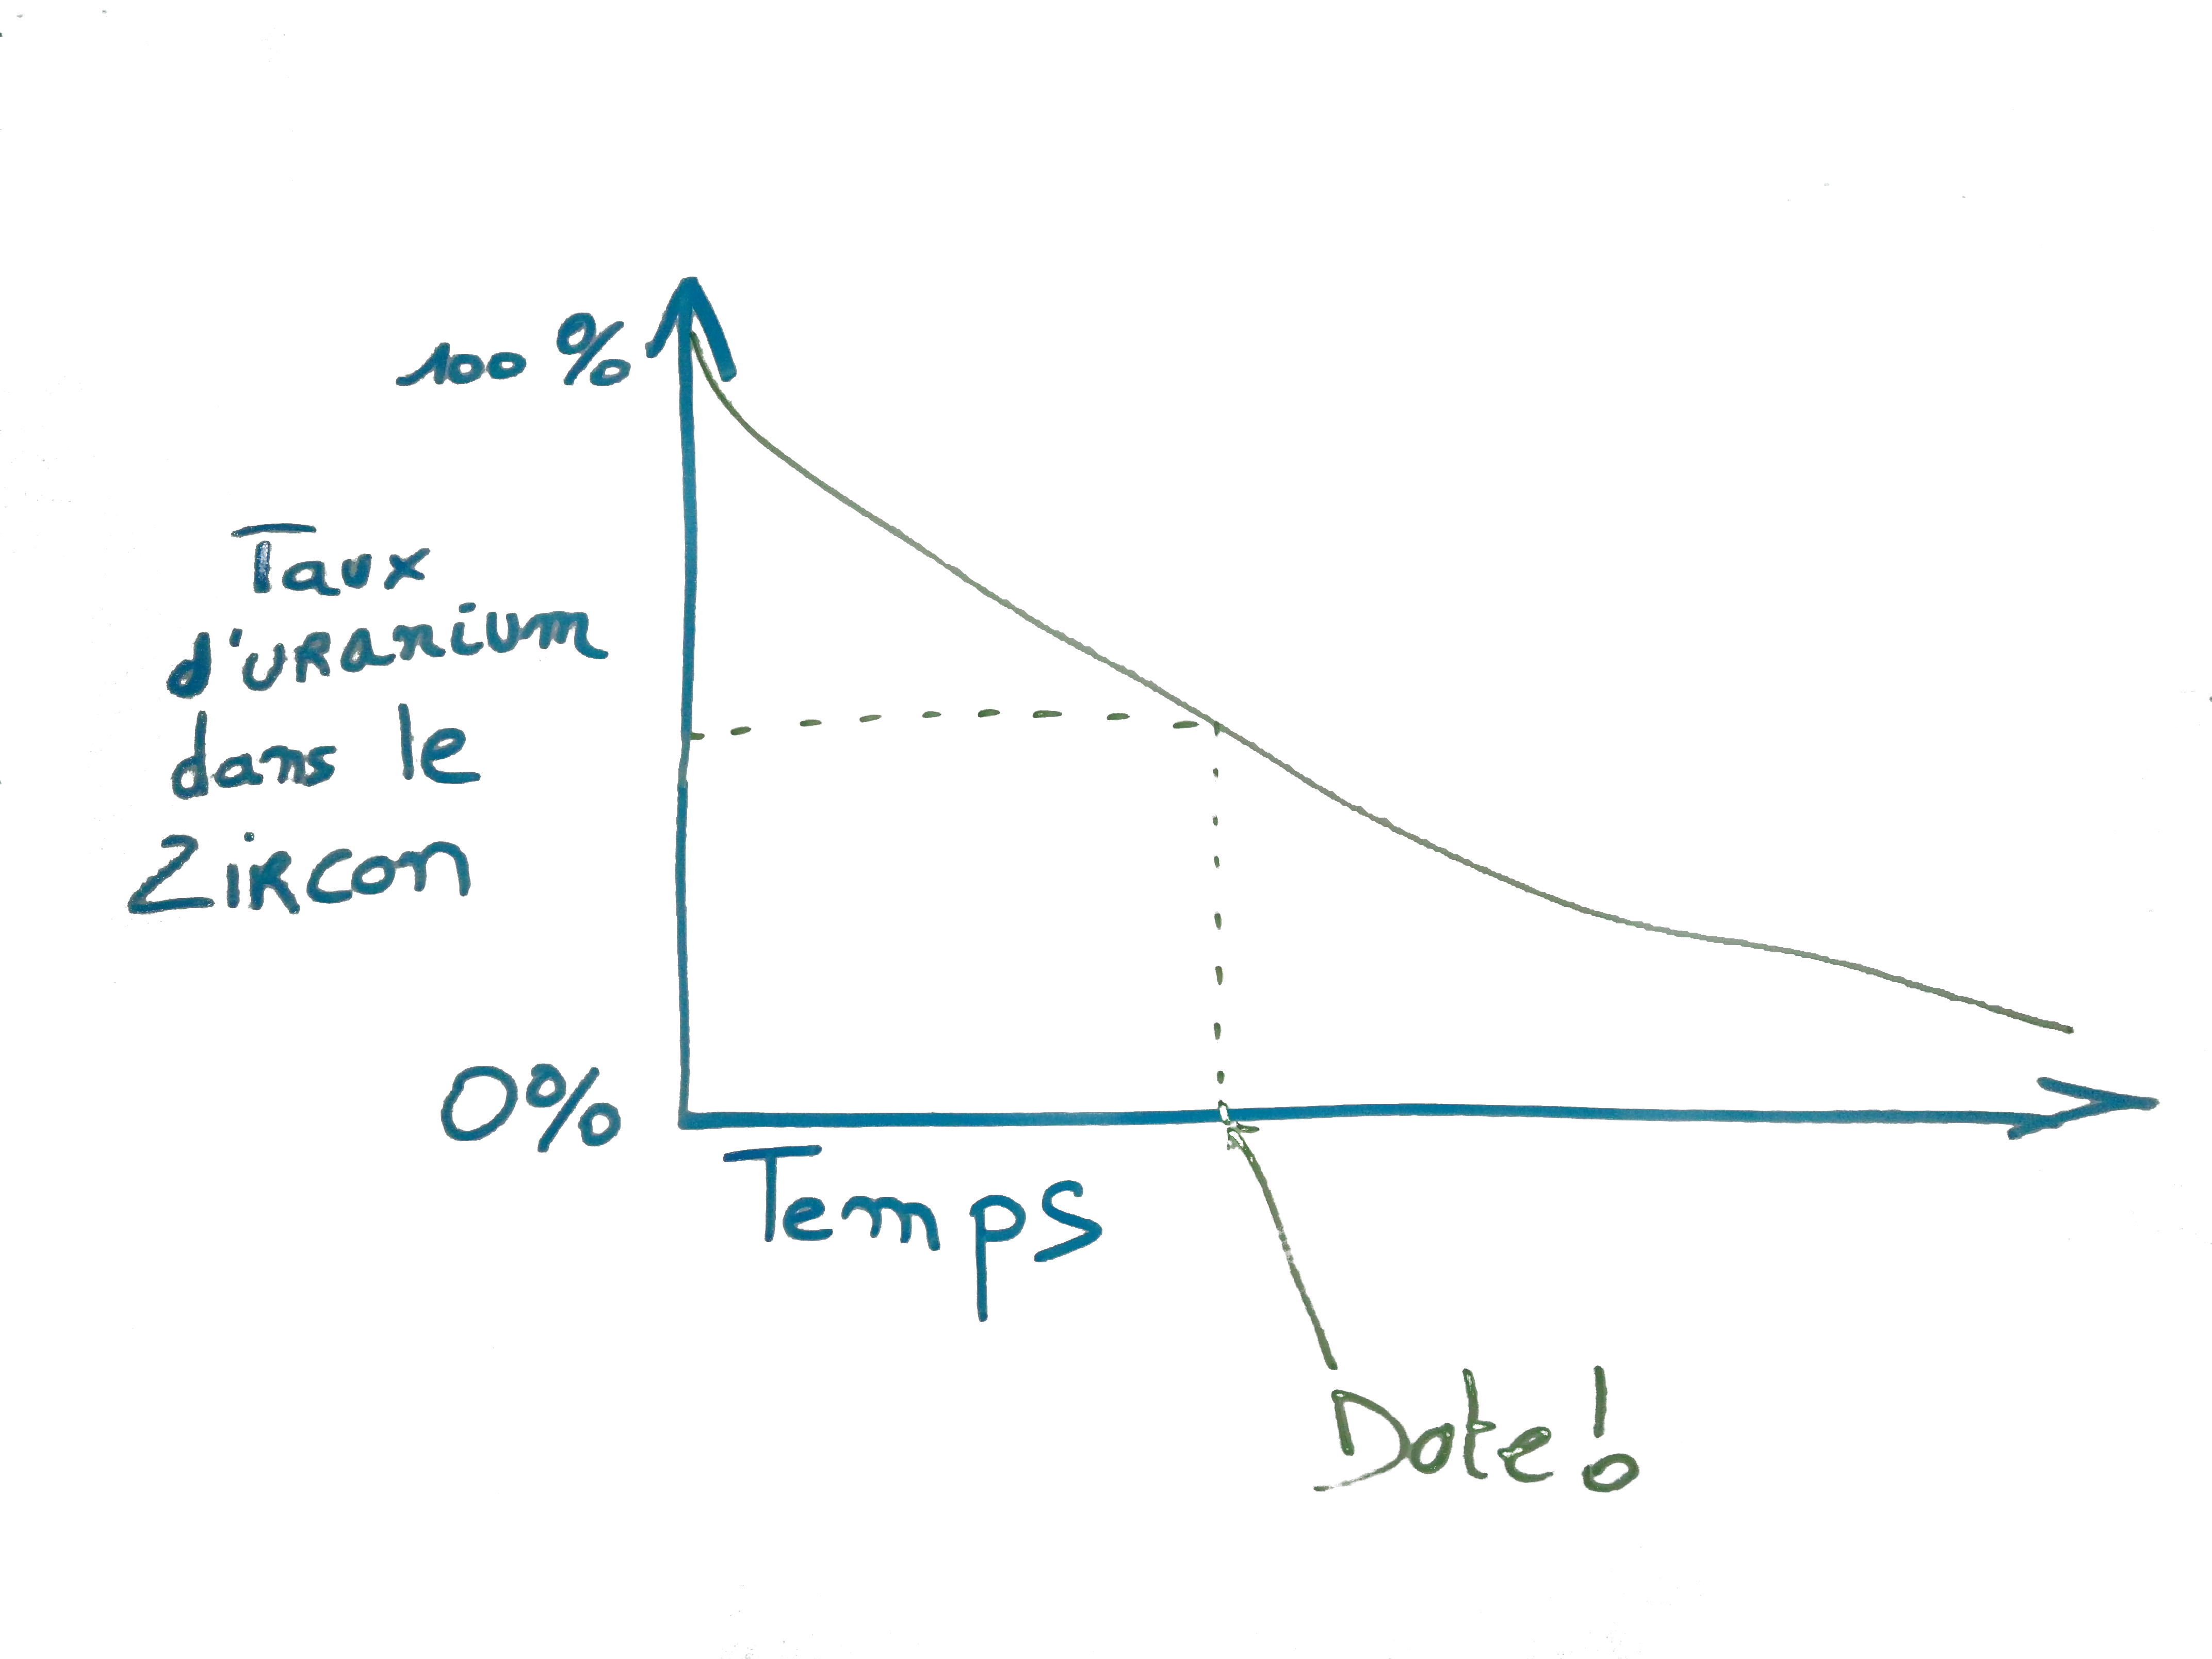 100%
Taux
d'uranium
dans le
Zircon
0%
Temps
Date!